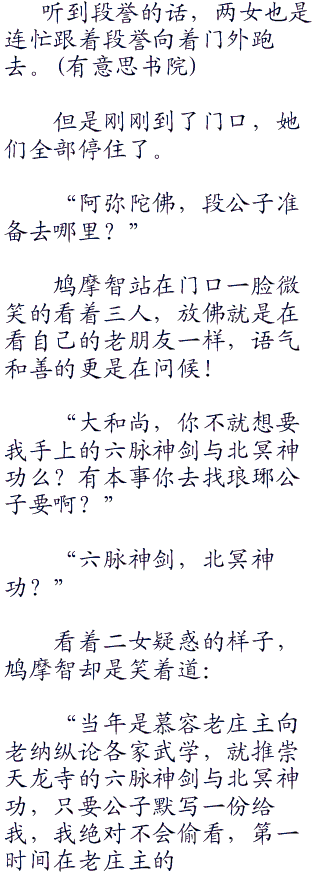 听到段誉的话，两女也是
连忙跟着段誉向着门外跑
去。(有意思书院)
但是刚刚到了门口，她
们全部停住了。
“阿弥陀佛，段公子准
备去哪里？”
鸠摩智站在门口一脸微
笑的看着三人，放佛就是在
看自己的老朋友一样，语气
和善的更是在问候！
“大和尚，你不就想要
我手上的六脉神剑与北冥神
功么？有本事你去找琅琊公
子要啊？”
“六脉神剑，北冥神
功？”
看着二女疑惑的样子，
鸠摩智却是笑着道：
“当年是慕容老庄主向
老纳纵论各家武学，就推崇
天龙寺的六脉神剑与北冥神
功，只要公子默写一份给
我，我绝对不会偷看，第一
时间在老庄主的